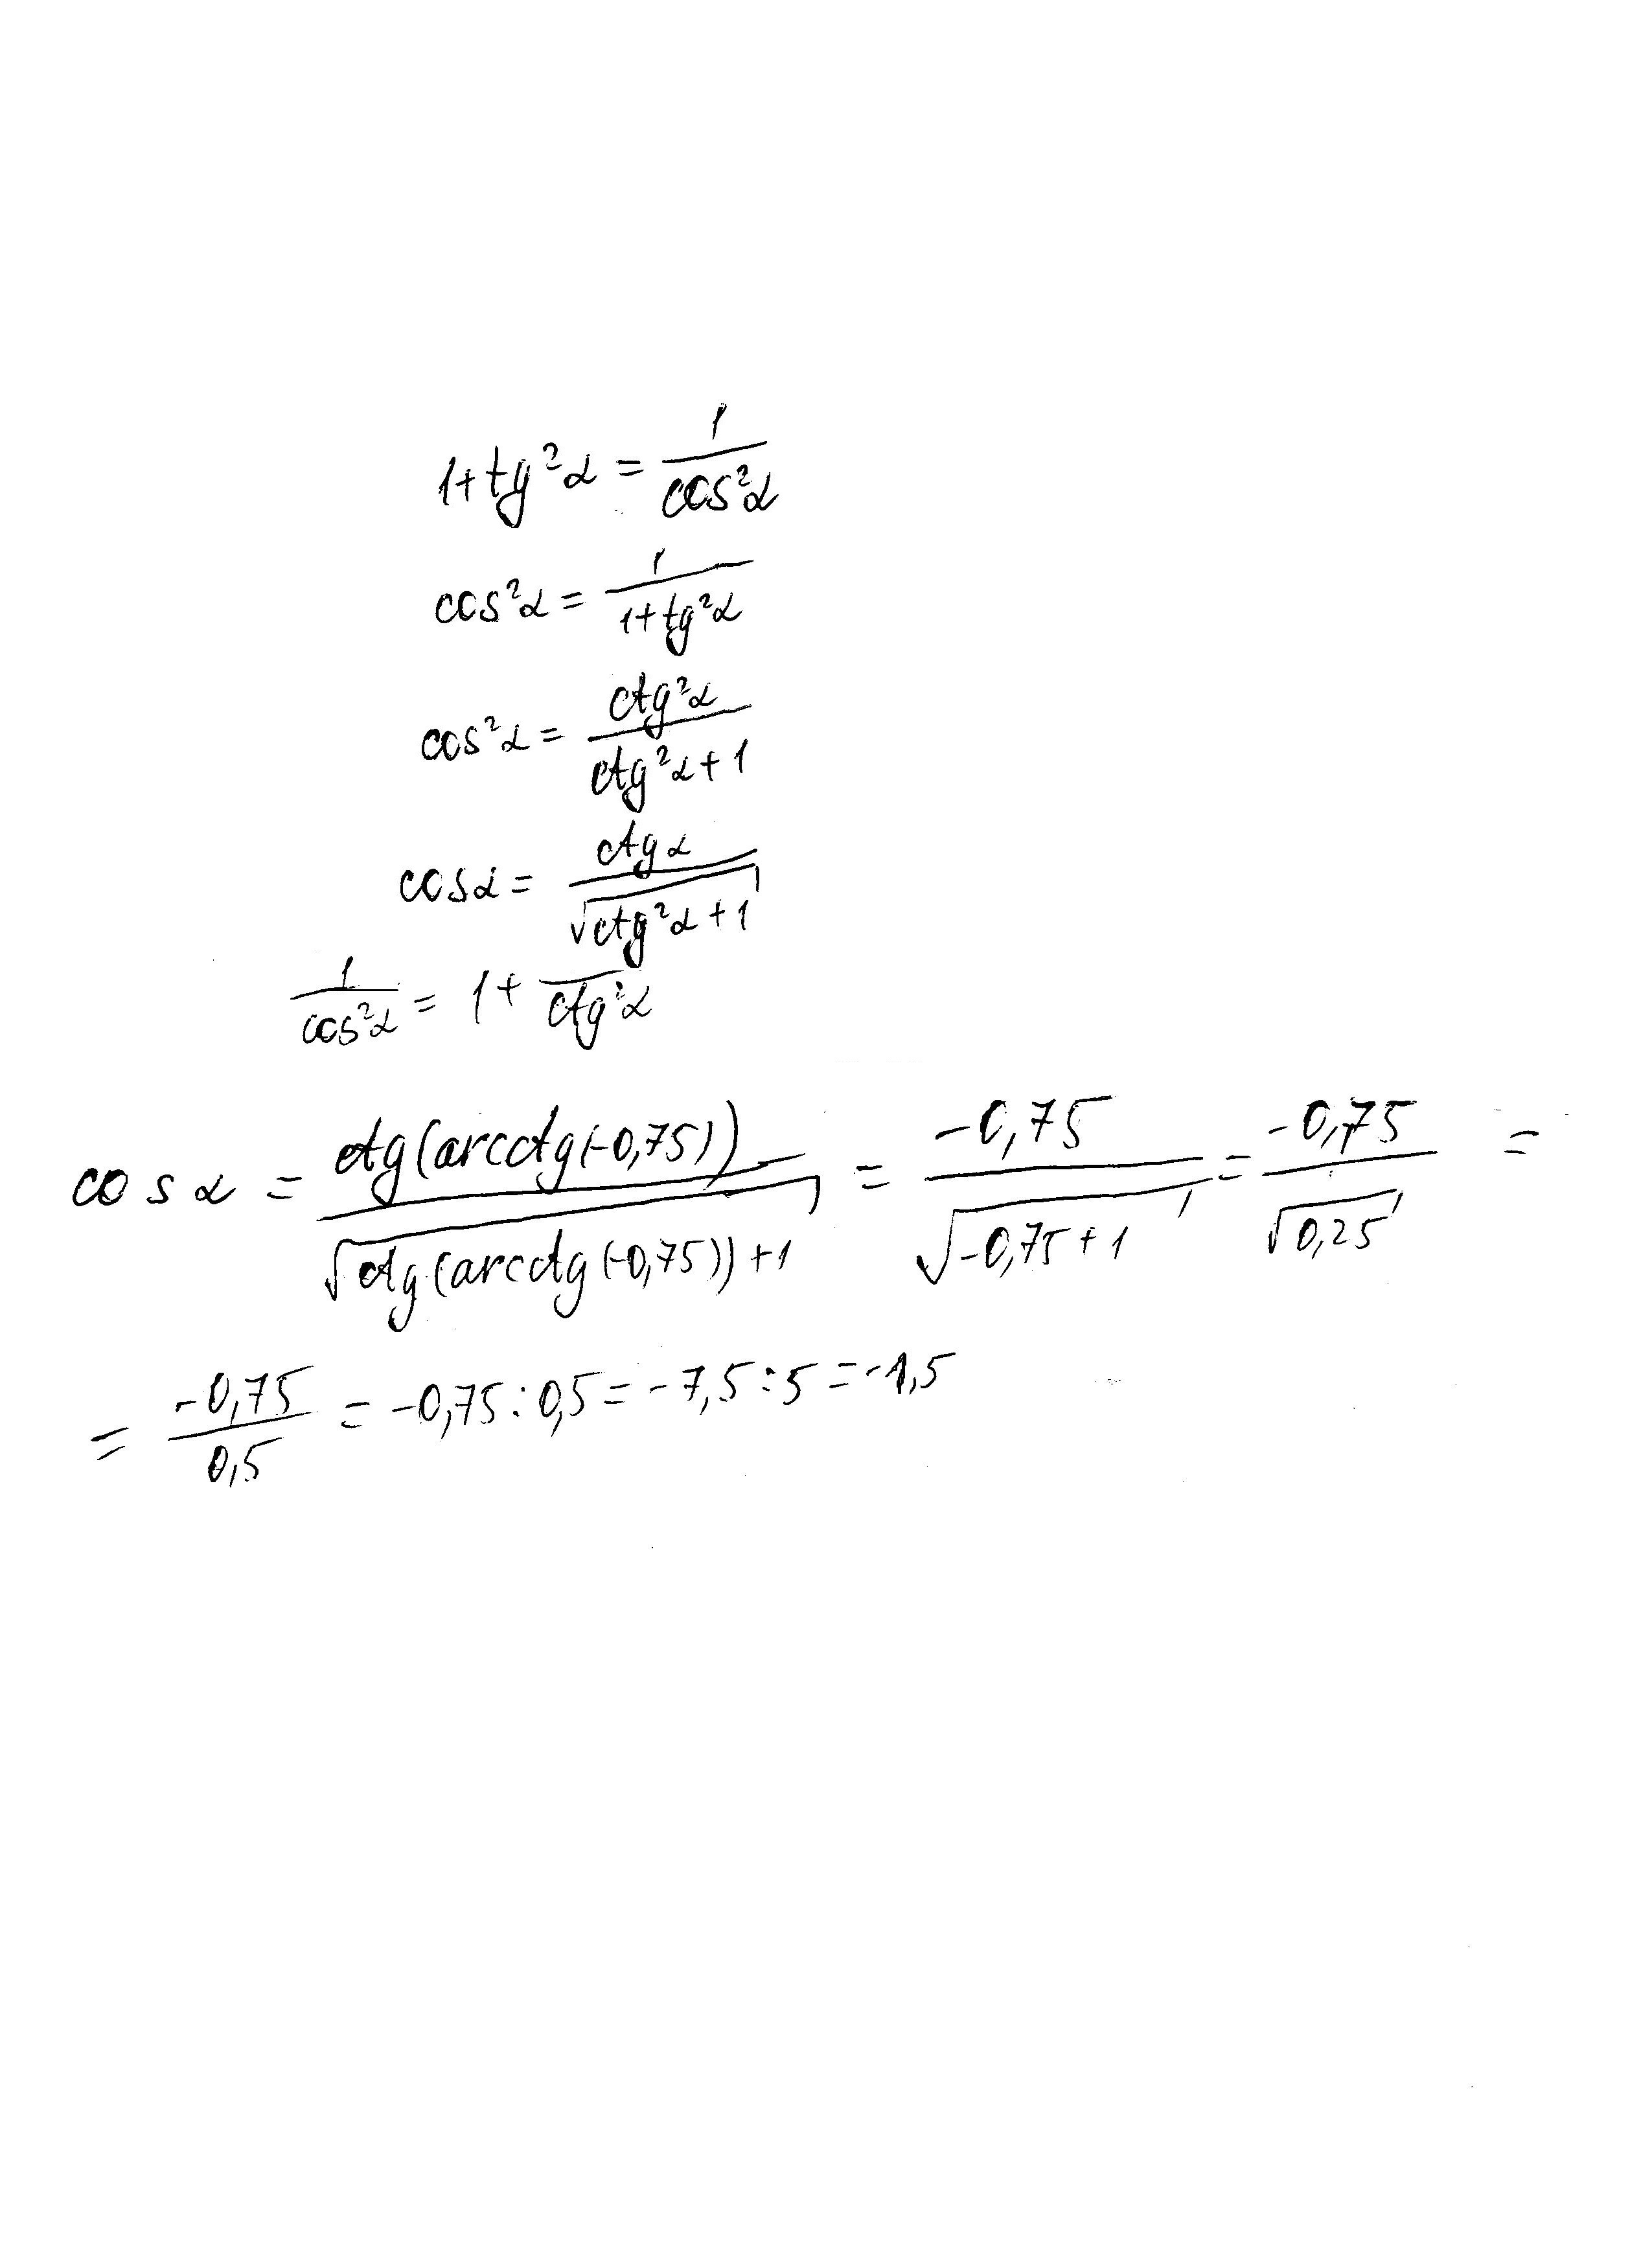 1+tg²α = 1/cos²α
cos²α = 1/(1+tg²α)
cos²α = ctg²α/(ctg²α+1)
cosα = ctgα/√(ctg²α+1)
1/cos²α = 1+ —/ctg²α
cosα = ctg(arcctg(-0,75))/√(ctg(arcctg(-0,75))+1) = -0,75/√(-0,75+1) = -0,75/√0,25 =
= -0,75/0,5 = -0,75:0,5 = -7,5:5 = -1,5